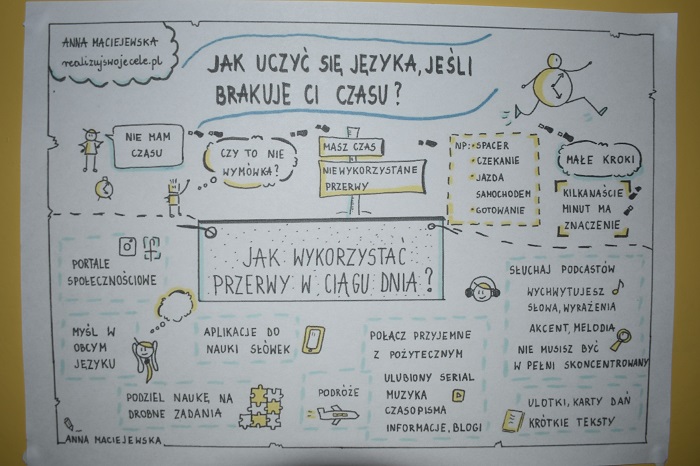 ANNA MACIEJEWSKA
realizujswojecele.pl
JAK UCZYĆ SIĘ JĘZYKA, JEŚLI
BRAKUJE CI CZASU?
NIE MAM
CZASU
CZY TO NIE
WYMÓWKA?
MASZ CZAS
NIEWYKORZYSTANE
PRZERWY
NP: • SPACER
• CZEKANIE
• JAZDA
SAMOCHODEM
• GOTOWANIE
MAŁE KROKI
KILKANAŚCIE
MINUT MA
ZNACZENIE
JAK WYKORZYSTAĆ
PRZERWY W CIĄGU DNIA?
PORTALE
SPOŁECZNOŚCIOWE
MYŚL W
OBCYM
JĘZYKU
APLIKACJE DO
NAUKI SŁÓWEK
PODZIEL NAUKĘ NA
DROBNE ZADANIA
PODRÓŻE
POŁĄCZ PRZYJEMNE
Z POŻYTECZNYM
ULUBIONY SERIAL
MUZYKA
CZASOPISMA
INFORMACJE, BLOGI
SŁUCHAJ PODCASTÓW
WYCHWYTUJESZ
SŁOWA, WYRAŻENIA
AKCENT, MELODIA
NIE MUSISZ BYĆ
W PEŁNI SKONCENTROWANY
ULOTKI, KARTY DAŃ
KRÓTKIE TEKSTY
ANNA MACIEJEWSKA